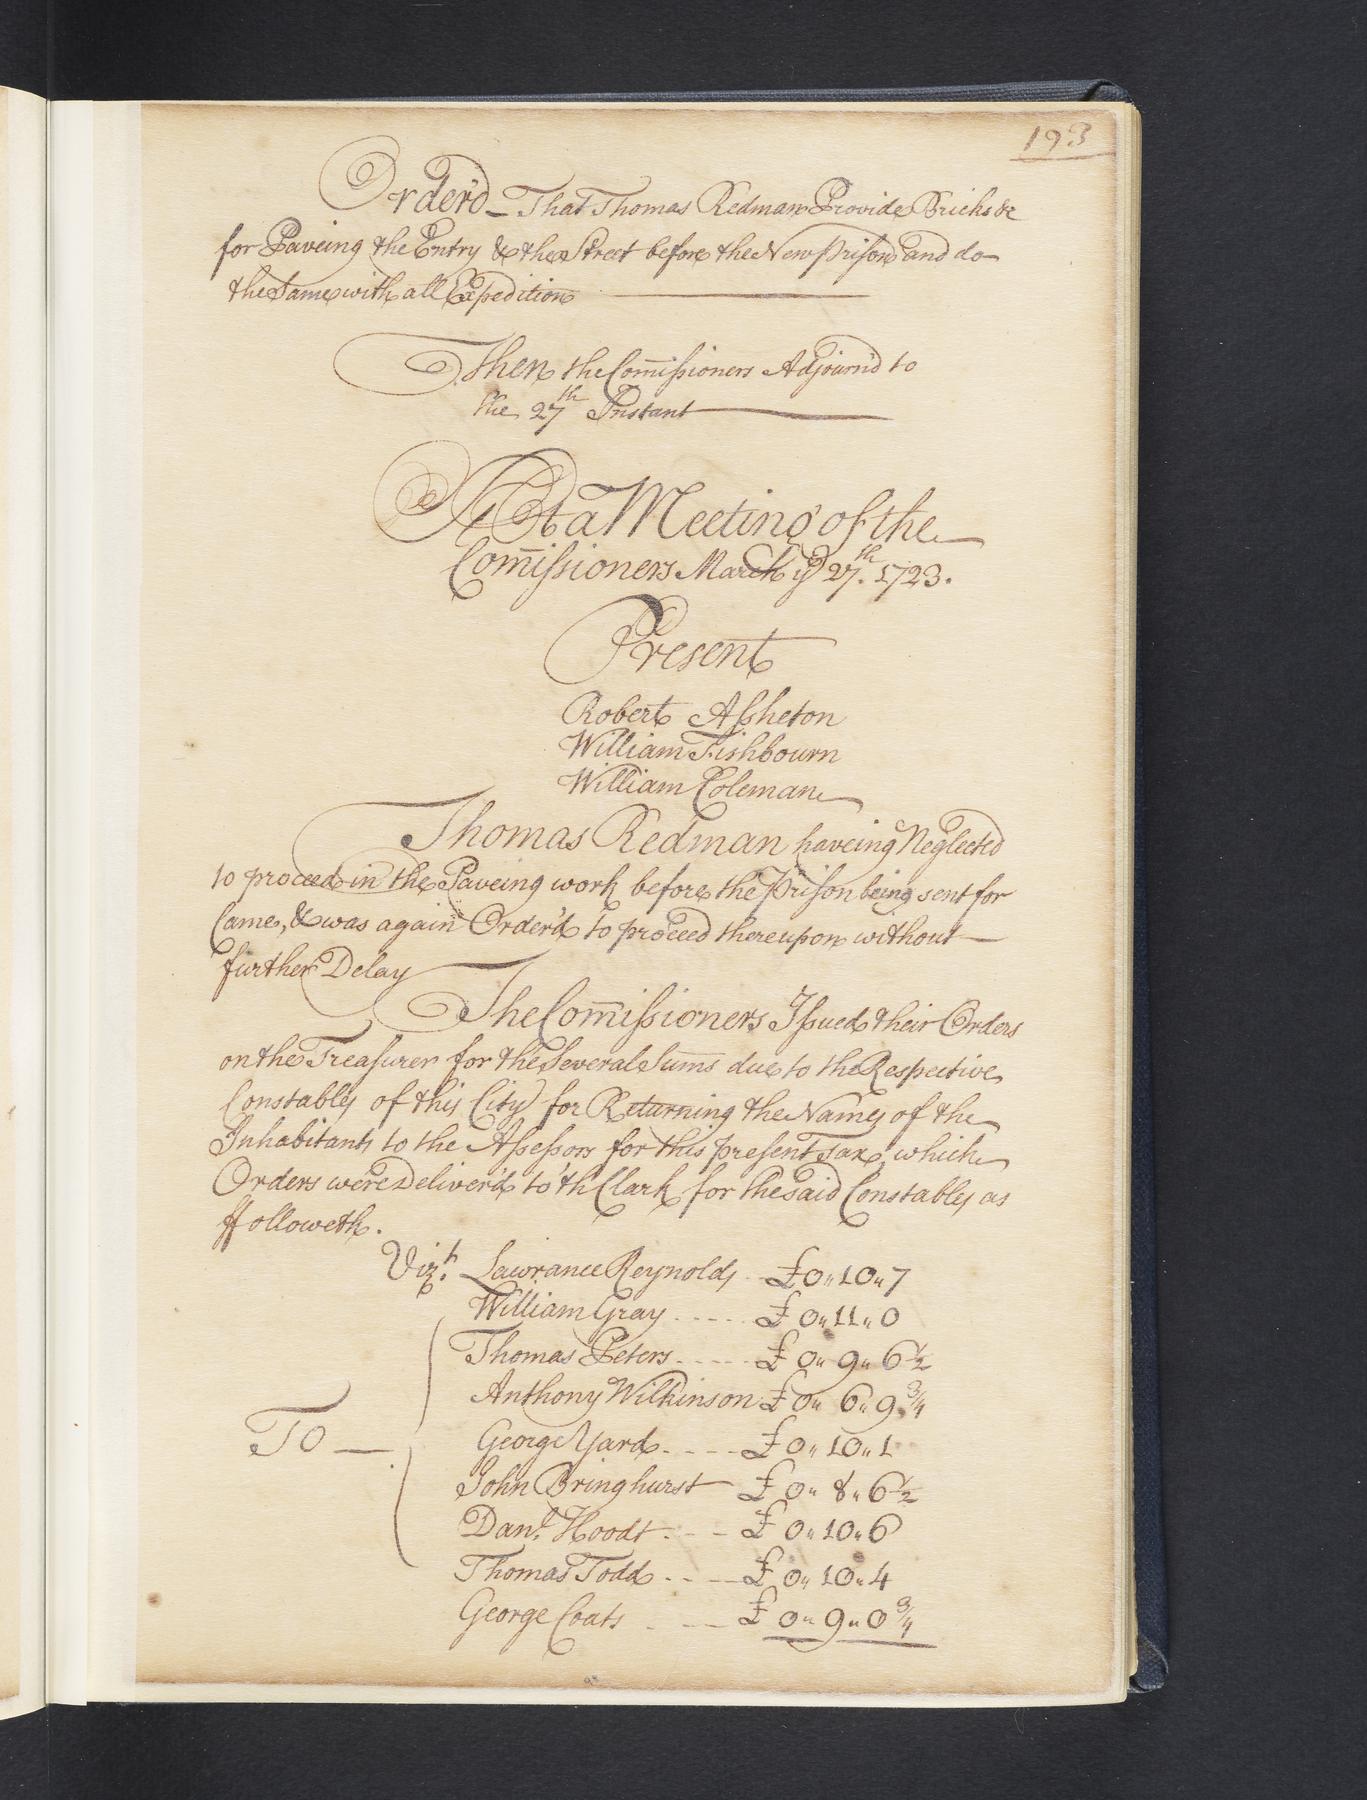 193
Order'd – That Thomas Redman Provide Bricks &c
for Paveing the Entry & the Street before the New Prison and do
the Same with all Expedition
Then the Com̄issioners Adjourn'd to
the 27th Instant
At a Meeting of the
Com̄issioners March ye 27th. 1723.
Present
Robert Assheton
William Fishbourn
William Coleman
Thomas Redman haveing Neglected
to proceed in the Paveing work before the Prison being sent for
Came, & was again Order'd to proceed thereupon without
further Delay
The Com̄issioners Issued their Orders
on the Treasurer for the Several Sum̄s due to the Respective
Constables of this City for Returning the Names of the
Inhabitants to the Assessors for this present Tax, which
Orders were Deliver'd to th' Clark for the said Constables as
ffolloweth.
Vizt. Lawrance Reynolds .. £0〃10〃7
William Gray ..... £0〃11〃0
Thomas Peters ..... £0〃9〃6½
Anthony Wilkinson £0〃6〃9¾
To — George Yard .... £0〃10〃1
John Bringhurst £0〃8〃6½
Danl. Hoodt ... £0〃10〃6
Thomas Todd .... £0〃10〃4
George Coats ... £0〃9〃0¾